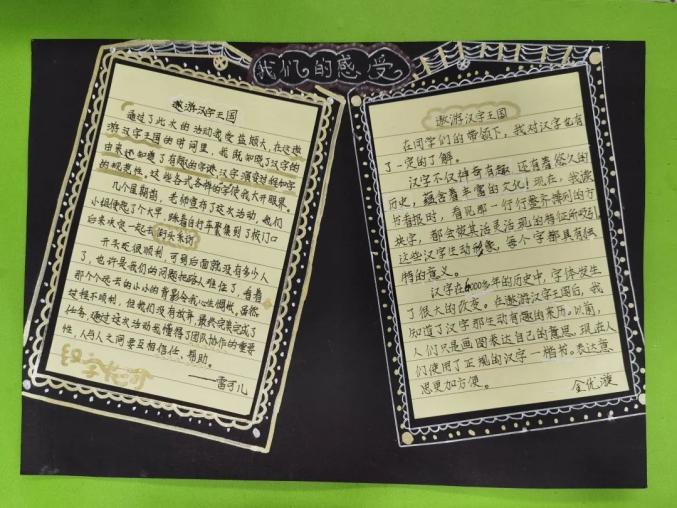 我们的感受
遨游汉字王国
通过了此次的活动我受益颇大,在这遨
游汉字王国的时间里,我既知晓了汉字的
由来还知道了有趣的字谜,汉字演变过程和字
的规范性,这些各式各样的字使我大开眼界。
几个星期前,老师宣布了这次活动,我们
小组便起了个大早,踩着自行车聚集到了校门口
后来欢快一起去街头采访
开头还很顺利,可到后面就没有多少人
了,也许是我们的问题把路人难住了,看着
那个个远去的小小的背影令我心生惆怅,虽然
过程不顺利,但我们没有放弃,最终完美完成了
任务,通过这次活动我懂得了团队协作的重要
性,人与人之间要互相信任、帮助。
——雷可儿
遨游汉字王国
在同学们的带领下,我对汉字也有
了一定的了解。
汉字不仅神奇有趣,还有着悠久的
历史,蕴含着丰富的文化!现在,我读
书看报时,看见那一行行整齐排列的方
块字,都会被其活灵活现的特征所吸引
这些汉字生动形象,每个字都具有独
特的意义。
汉字在6000多年的历史中,字体发生
了很大的改变。在遨游汉字王国后,我
知道了汉字那生动有趣的来历。以前,
人们只是画图表达自己的意思,现在人
们使用了正规的汉字一楷书。表达意
思更加方便。
金优漩